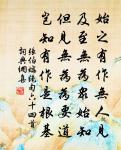 始之有作無人見
及至無為眾始知
但見無為為要道
豈知有作是根基
張伯端絕句六十四首
詞典網書